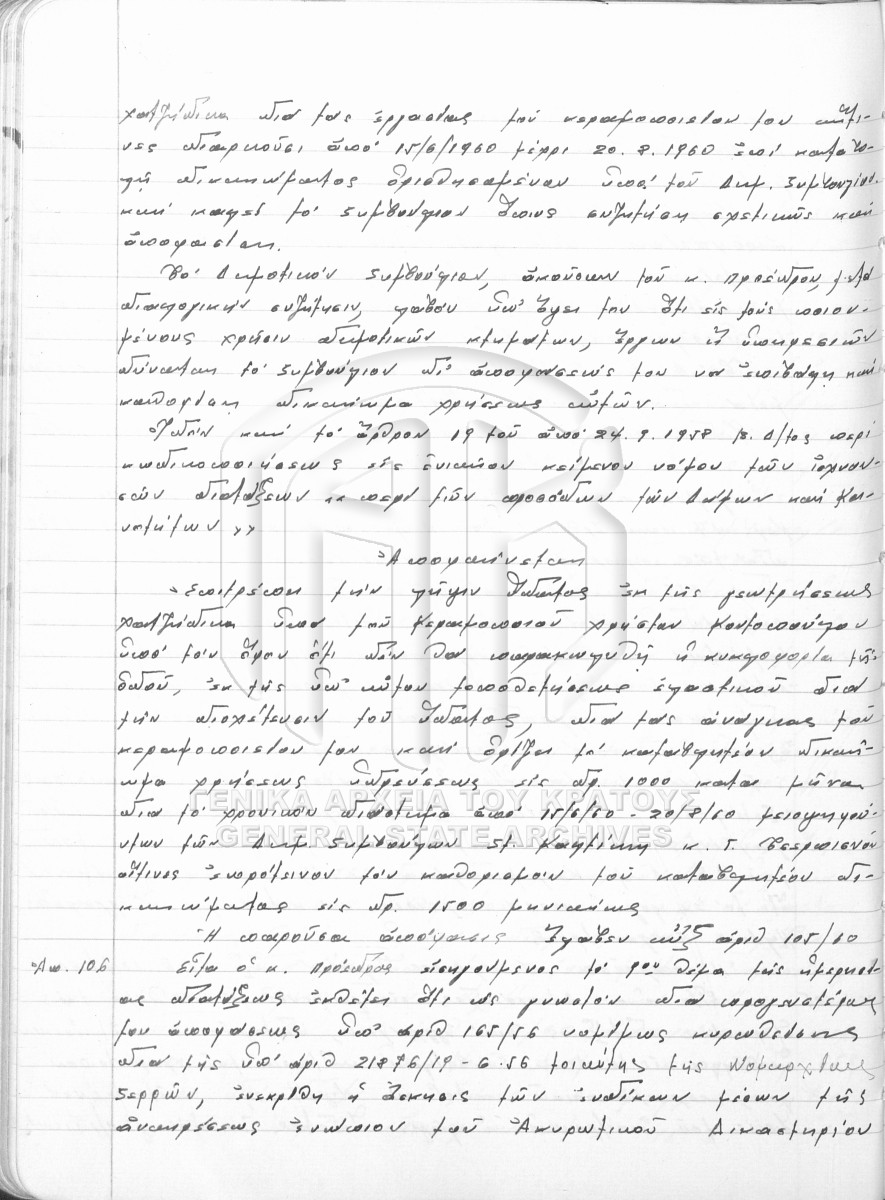 Χατζήδικα διά τας ἐργασίας τοῦ κεραμοποιείου του αἵτι-
νες διαρκοῦσι ἀπό 15/6/1960 μέχρι 20.8.1960 ἐπί καταβο-
λῇ δικαιώματος ὁρισθησομένου ὑπό τοῦ Δημ. Συμβουλίου.
καί καλεῖ τό Συμβούλιον ὅπως συζητήσῃ σχετικῶς καί
ἀποφασίσῃ.
Τό Δημοτικόν Συμβούλιον, ἀκοῦσαν τοῦ κ. Προέδρου, μετά
διαλογικήν συζήτησιν, λαβόν ὑπ' ὄψει του ὅτι εἰς τούς ποιου-
μένους χρῆσιν δημοτικῶν κτημάτων, ἔργων ἤ ὑπηρεσιῶν
δύναται τό Συμβούλιον δι' ἀποφάσεώς του να ἐπιβάλῃ καί
καθορίσῃ δικαίωμα χρήσεως αὐτῶν.
Ἰδόν καί τό ἄρθρον 19 τοῦ ἀπό 24.9.1958 Β. Δ/τος περί
κωδικοποιήσεως εἰς ἑνιαῖον κείμενον νόμου τῶν ἰσχυου-
σῶν διατάξεων «περί τῶν προσόδων τῶν Δήμων καί Κοι-
νοτήτων»
Ἀποφαίνεται
Ἐπιτρέπει τήν λῆψιν ὕδατος ἐκ τῆς γεωτρήσεως
Χατζήδικα ὑπό τοῦ Κεραμοποιοῦ Χρήστου Κοντοπούλου
ὑπό τόν ὅρον ὅτι δέν θα παρακωλυθῇ ἡ κυκλοφορία τῆς
ὁδοῦ, ἐκ τῆς ὑπ' αὐτοῦ τοποθετήσεως ἐλαστικοῦ διά
τήν διοχέτευσιν τοῦ ὕδατος, διά τας ἀνάγκας τοῦ
κεραμοποιείου του καί ὁρίζει τό καταβλητέον δικαί-
ωμα χρήσεως ὑδρεύσεως εἰς δρ. 1000 κατά μῆνα
διά τό χρονικόν διάστημα ἀπό 15/6/60 - 20/8/60 μειοψηφούν-
των τῶν Δημ. Συμβούλων Στ. κ. Γ.
οἵτινες ἐπρότεινον τόν καθορισμόν τοῦ καταβλητέου δι-
καιώματος εἰς δρ. 1500 μηνιαίως
Ἡ παροῦσα ἀπόφασις ἔλαβεν αὔξ ἀριθ 105/60
Ἀπ. 106 Εἶτα ὁ κ. Πρόεδρος εἰσηγούμενος τό 9ον θέμα τῆς ἡμερησί-
ας διατάξεως ἐκθέτει ὅτι ὡς γνωστόν διά προγενεστέρας
του ἀποφάσεως ὑπ' ἀριθ 165/56 νομίμως κυρωθείσης
διά τῆς ὑπ' ἀριθ 21876/19-6-56 τοιαύτης τῆς Νομαρχίας
Σερρῶν, ἐνεκρίθη ἡ ἄσκησις τῶν ἐνδίκων μέσων τῆς
ἀναιρέσεως ἐνώπιον τοῦ Ἀκυρωτικοῦ Δικαστηρίου
ΓΕΝΙΚΑ ΑΡΧΕΙΑ ΤΟΥ ΚΡΑΤΟΥΣ
GENERAL STATE ARCHIVES